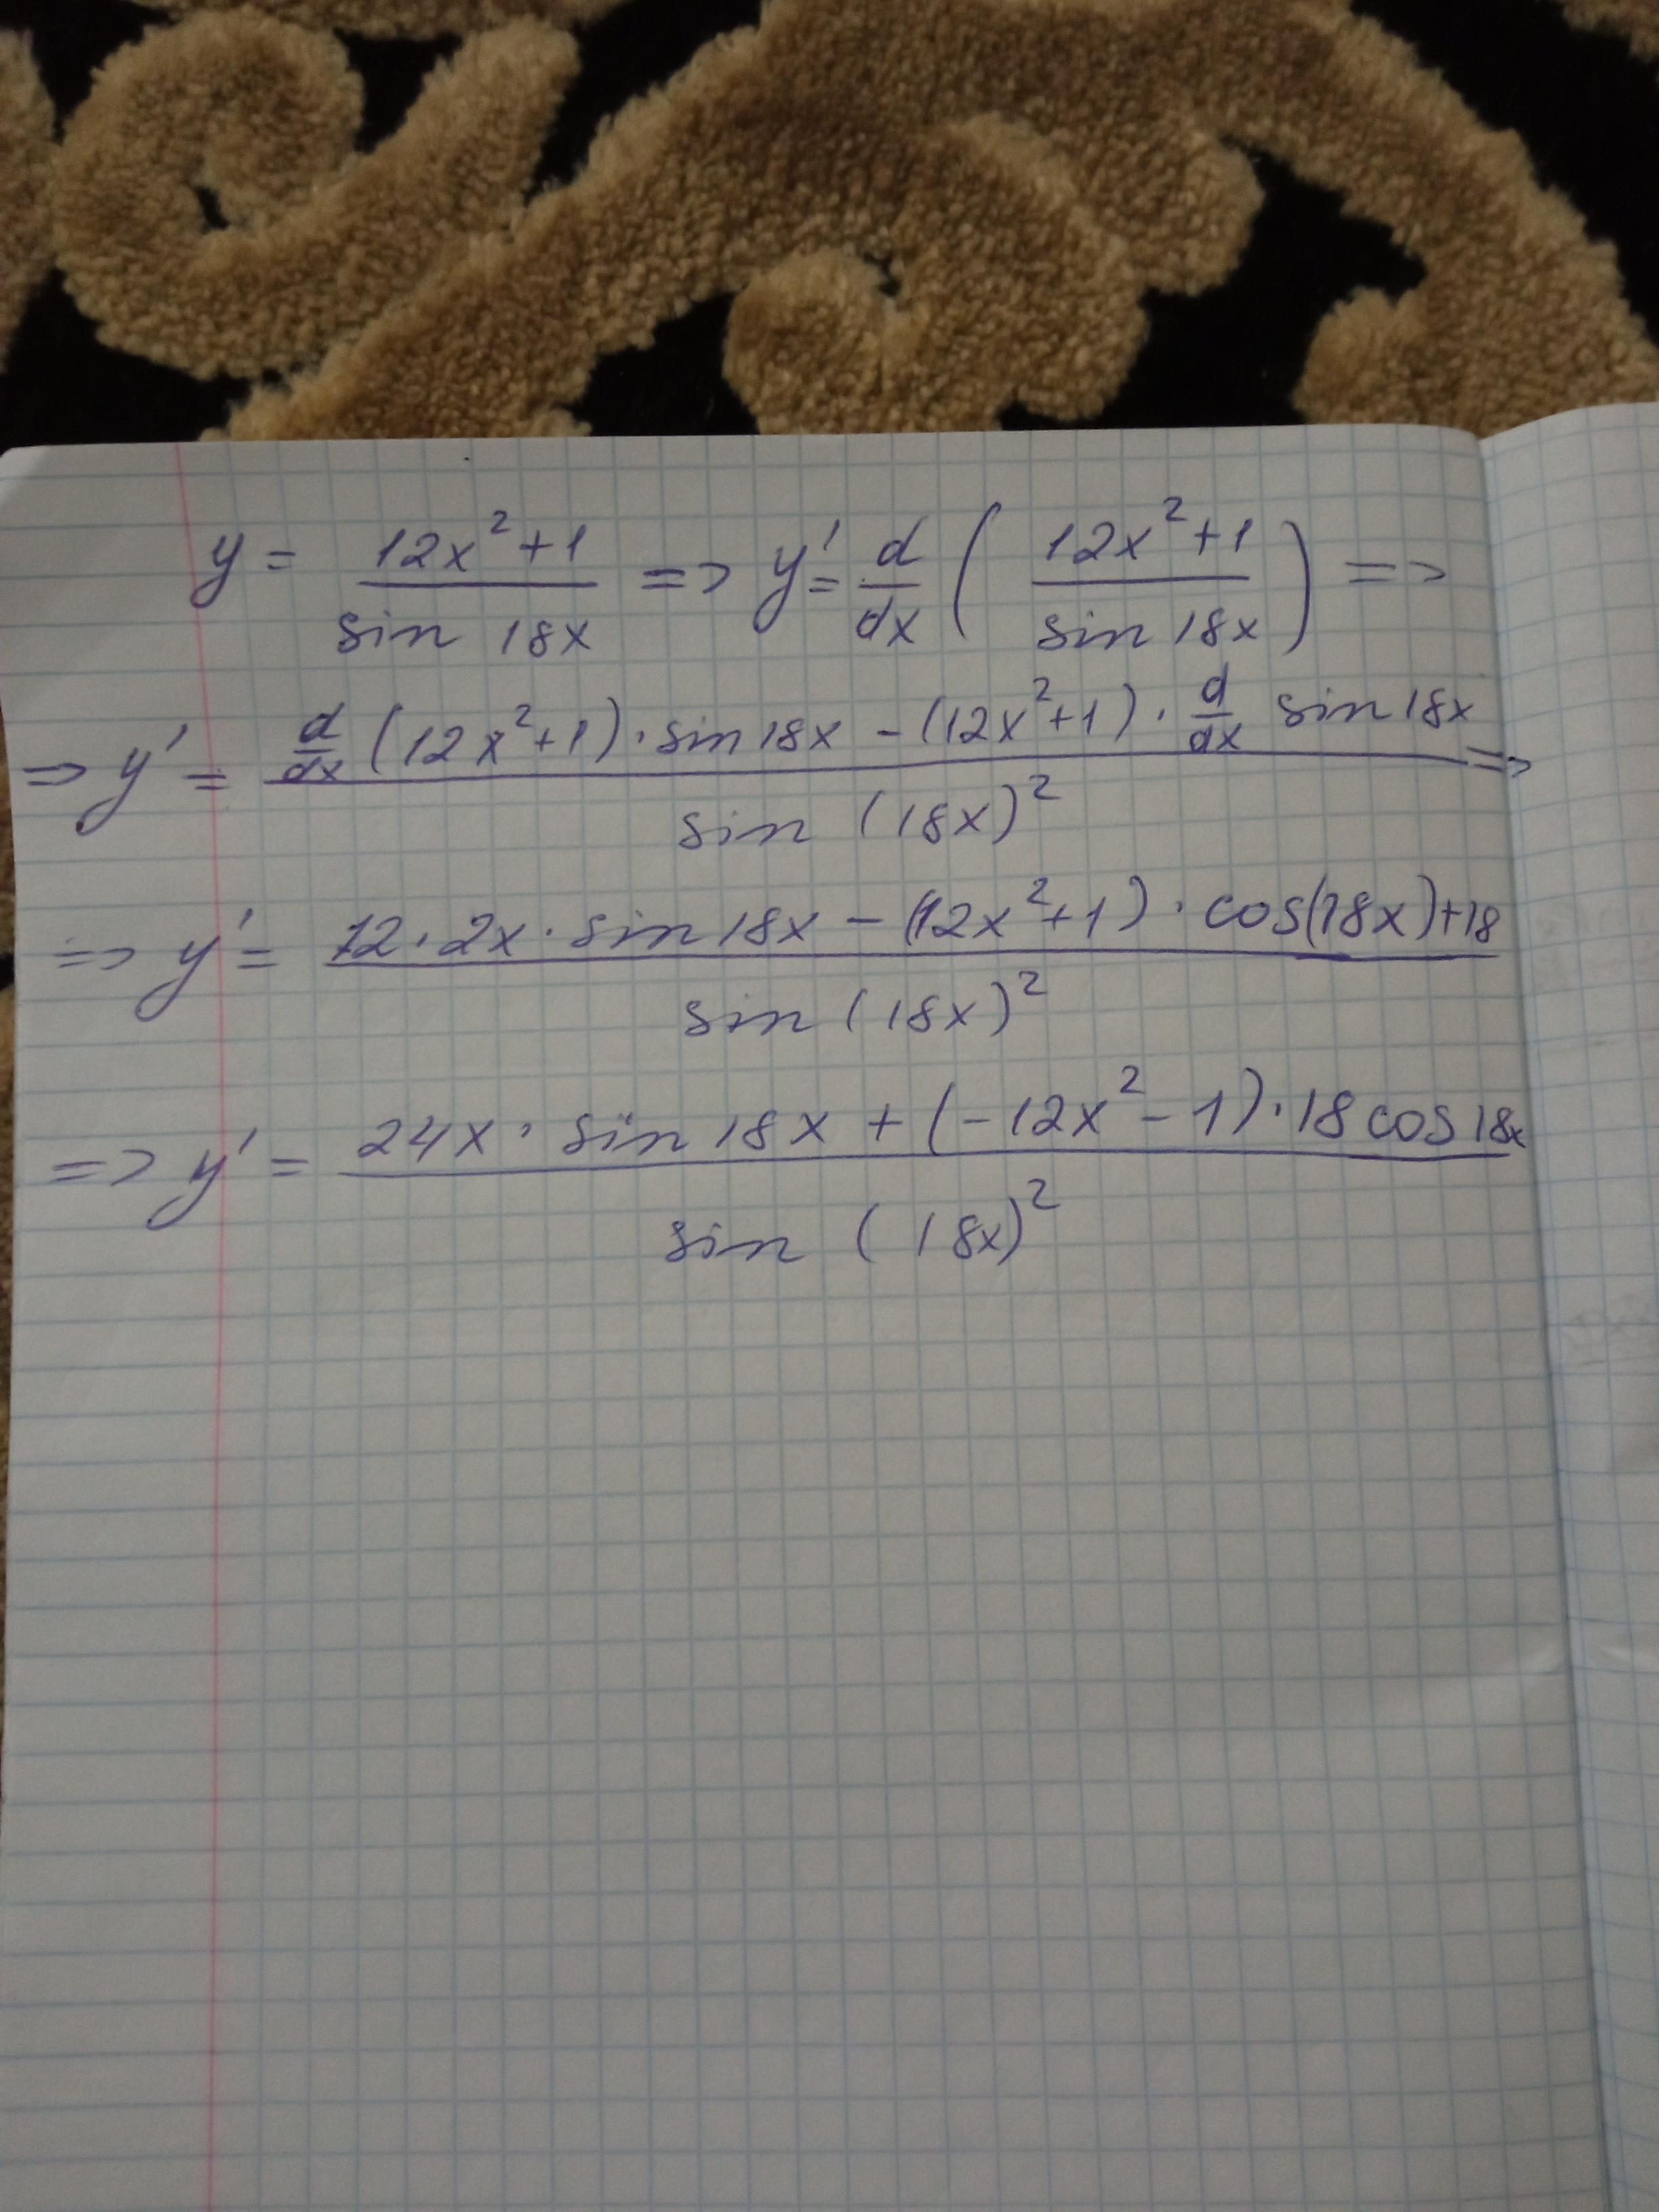 y = \frac{12x^2+1}{\sin 18x} => y' = \frac{d}{dx} \left( \frac{12x^2+1}{\sin 18x} \right) =>
=> y' = \frac{\frac{d}{dx}(12x^2+1) \cdot \sin 18x - (12x^2+1) \cdot \frac{d}{dx} \sin 18x}{\sin (18x)^2} =>
=> y' = \frac{12 \cdot 2x \cdot \sin 18x - (12x^2+1) \cdot \cos(18x)+18}{\sin (18x)^2}
=> y' = \frac{24x \cdot \sin 18x + (-12x^2-1) \cdot 18 \cos 18x}{\sin (18x)^2}